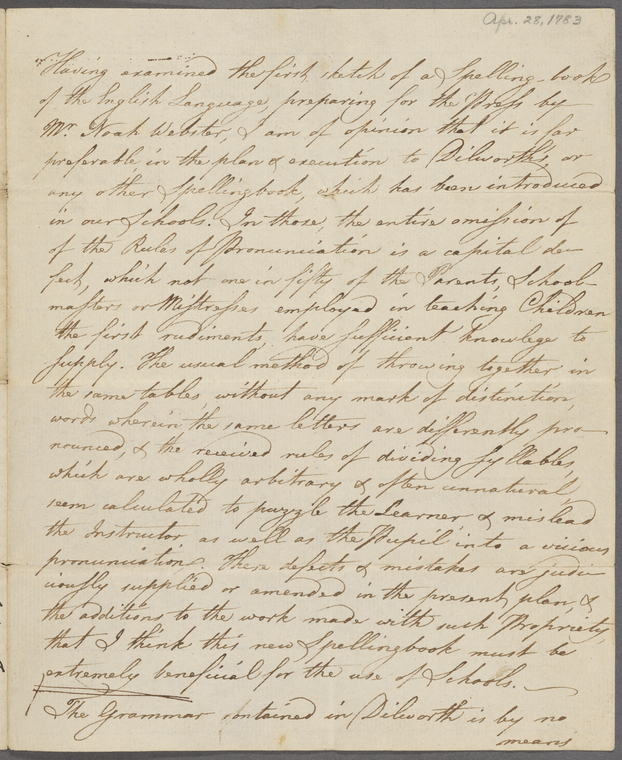 Apr. 28, 1783
Having examined the first sketch of a Spelling-book
of the English Language, preparing for the Press by
Mr. Noah Webster, I am of opinion that it is far
preferable in the plan & execution to Dilworths, or
any other Spellingbook, which has been introduced
in our Schools. In those, the entire omission of
of the Rules of Pronunciation is a capital de-
fect, which not one in fifty of the Parents, School-
masters or Mistresses employed in teaching Children
the first rudiments, have sufficient knowlege to
supply. The usual method of throwing together in
the same tables without any mark of distinction,
words wherein the same letters are differently pro-
nounced, & the received rules of dividing syllables,
which are wholly arbitrary & often unnatural,
seem calculated to puzzle the Learner & mislead
the Instructor as well as the Pupil into a vicious
pronunciation. These defects & mistakes are judi-
ciously supplied or amended in the present plan, &
the additions to the work made with such Propriety,
that I think this new Spellingbook must be
extremely beneficial for the use of Schools.
The Grammar contained in Dilworth is by no
means